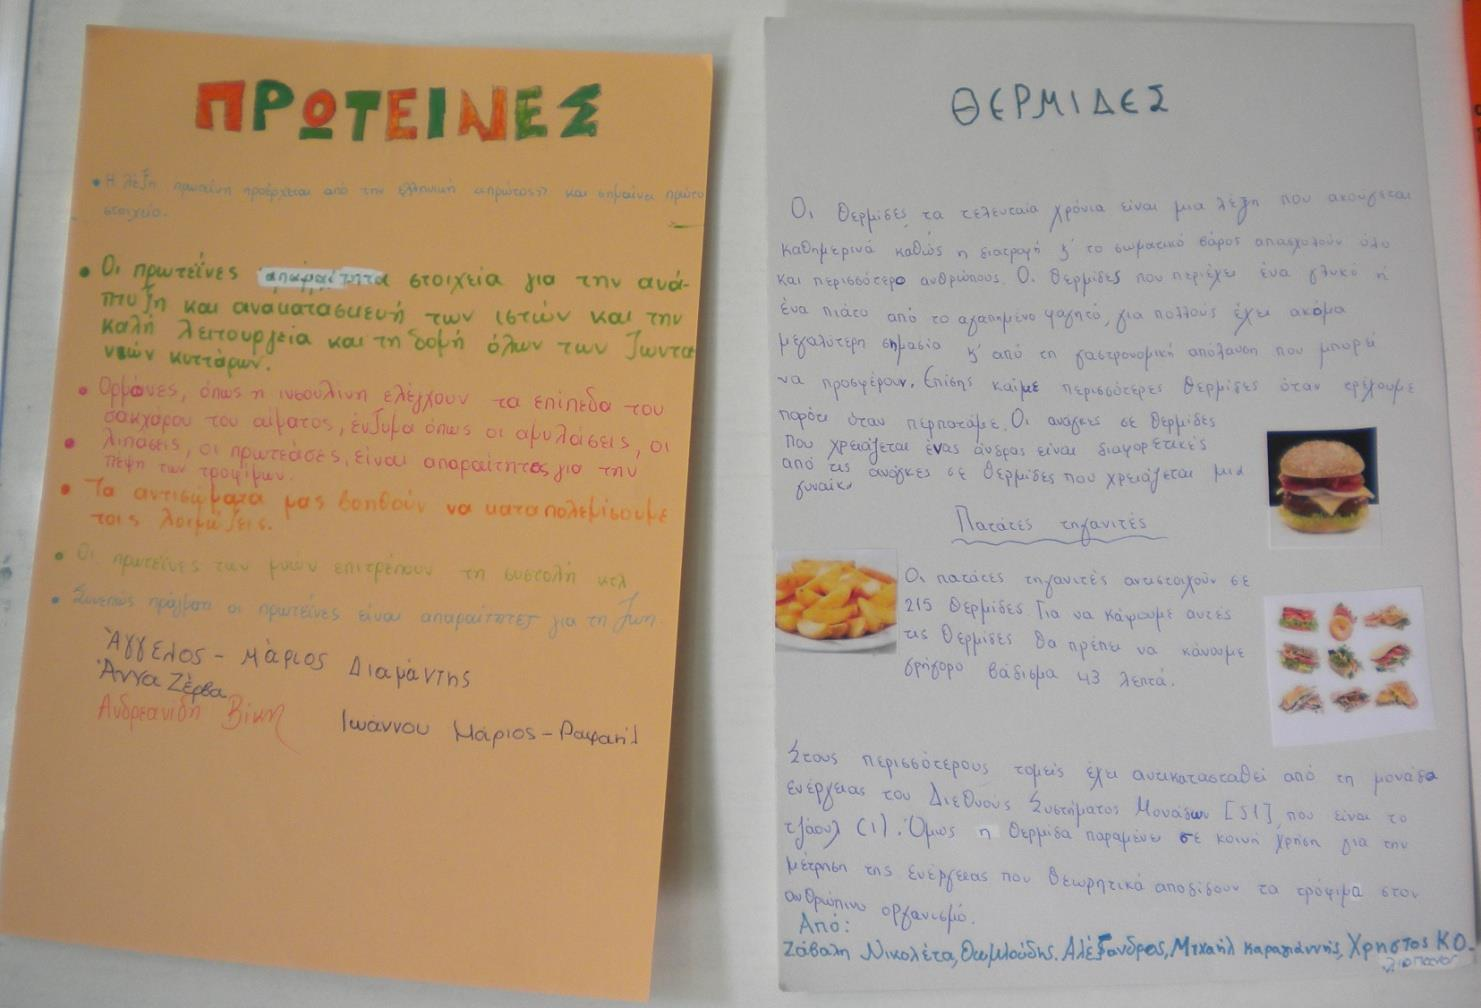 ΠΡΩΤΕΙΝΕΣ
• Η λέξη πρωτεΐνη προέρχεται από την ελληνική «πρώτος» και σημαίνει πρώτο
στοιχείο.
• Οι πρωτεΐνες απαραίτητα στοιχεία για την ανά-
πτυξη και ανακατασκευή των ιστών και την
καλή λειτουργεία και τη δομή όλων των ζωντα
νών κυττάρων.
• Ορμόνες, όπως η ινσουλίνη ελέγχουν τα επίπεδα του
σακχάρου του αίματος, ένζυμα όπως οι αμυλάσεις, οι
• λιπάσεις, οι πρωτεάσες, είναι απαραίτητος για την
πέψη των τροφίμων.
• Τα αντισώματα μας βοηθούν να καταπολεμίσουμε
τοις λοιμώξεις.
• Οι πρωτεΐνες των μυών επιτρέπουν τη συστολή κτλ
• Συνεπώς πράγματι οι πρωτεΐνες είναι απαραίτητες για τη ζωη.
Άγγελος - Μάριος Διαμάντης
Άννα Ζέρβα
Ανδρεανίδη Βίκη
Ιωάννου Μάριος - Ραφαήλ
ΘΕΡΜΙΔΕΣ
Οι θερμίδες τα τελευταία χρόνια είναι μια λέξη που ακούγεται
καθημερινά καθώς η διατροφή ξ' το σωματικό βάρος απασχολούν όλο
και περισσότερο ανθρώπους. Οι θερμίδες που περιέχει ένα γλυκό ή
ένα πιάτο από το αγαπημένο φαγητό, για πολλούς έχει ακόμα
μεγαλύτερη σημασία ξ' από τη γαστρονομική απόλαυση που μπορεί
να προσφέρουν. Επίσης καίμε περισσότερες θερμίδες όταν τρέχουμε
παρότι όταν περπατάμε. Οι ανάγκες σε θερμίδες
που χρειάζεται ένας άνδρας είναι διαφορετικές
από τις ανάγκες σε θερμίδες που χρειάζεται μια
γυναίκα
Πατάτες τηγανιτές
Οι πατάτες τηγανιτές αντιστοιχούν σε
215 θερμίδες. Για να κάψουμε αυτές
τις θερμίδες θα πρέπει να κάνουμε
γρήγορο βάδισμα 43 λεπτά.
Στους περισσότερους τομείς έχει αντικατασταθεί από τη μονάδα
ενέργειας του Διεθνούς Συστήματος Μονάδων [SI], που είναι το
τζάουλ (1). Όμως η θερμίδα παραμένει σε κοινή χρήση για την
μέτρηση της ενέργειας που θεωρητικά αποδίδουν τα τρόφιμα στον
ανθρώπινο οργανισμό.
Από:
Ζάβαλη Νικολέτα, Θωμλούδης. Αλέξανδρος, Μιχαήλ Καραγιάννης, Χρηστος ΚΟ-